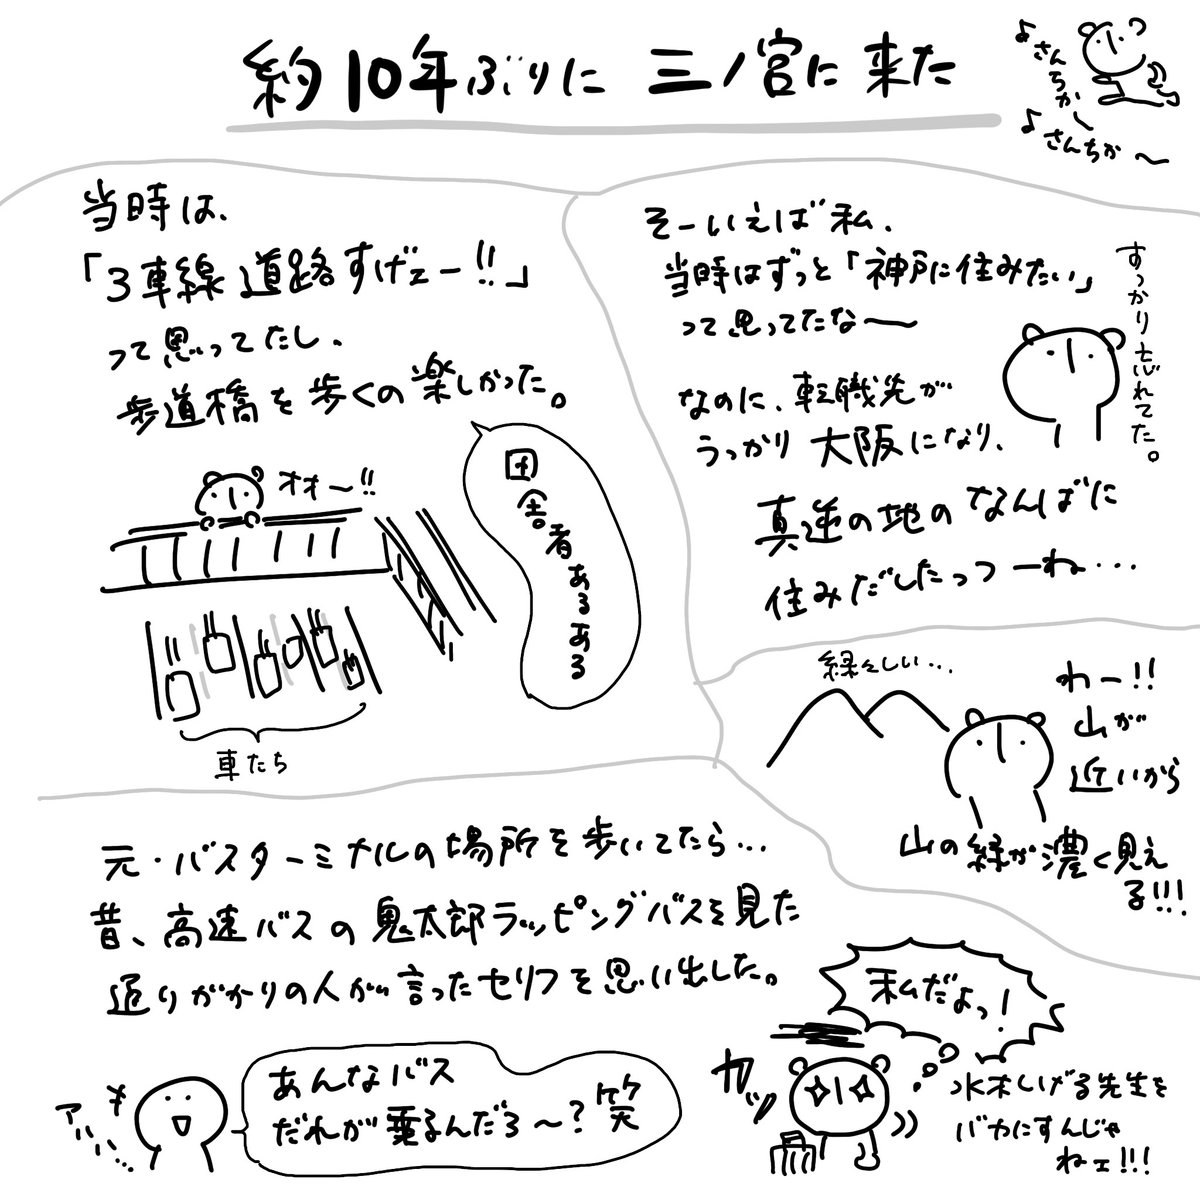 約10年ぶりに 三ノ宮に来た
♪さんちかー
♪さんちか〜
当時は、
「3車線道路すげェー!!」
って思ってたし、
歩道橋を歩くの楽しかった。
オオ〜!!
田舎者あるある
車たち
そーいえば私、
当時はずっと「神戸に住みたい」
って思ってたな〜
すっかり忘れてた。
なのに、転職先が
うっかり大阪になり、
真逆の地のなんばに
住みだしたっつーね…
緑々しい…
わー!!
山が
近いから
山の緑が濃く見え
る!!!
元・バスターミナルの場所を歩いてたら…
昔、高速バスの鬼太郎ラッピングバスを見た
通りがかりの人が言ったセリフを思い出した。
アハハ…
あんなバス
だれが乗るんだろ〜?笑
私だよっ!
カッ
水木しげる先生を
バカにすんじゃ
ねェ!!!